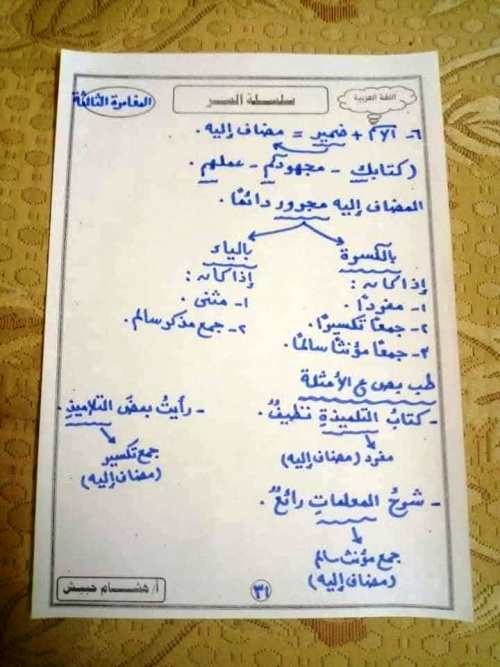 اللغة العربية
سلسلة السر
المغامرة الثالثة
٦- اسم + ضمير = مضاف إليه.
(كتابك - مجهودكم - عملهم.
المضاف إليه مجرور دائمًا.
بالكسرة
إذا كان:
١- مفردًا.
٢- جمعًا تكسيرًا.
٣- جمعًا مؤنثًا سالمًا.
بالياء
إذا كان:
١- مثنى.
٢- جمع مذكر سالم.
طب بص ع الأمثلة
- كتابُ التلميذةِ نظيفٌ.
مفرد (مضاف إليه)
- رأيتُ بعضَ التلاميذِ.
جمع تكسير
(مضاف إليه)
- شرحُ المعلماتِ رائعٌ.
جمع مؤنث سالم
(مضاف إليه)
٣١
أ/ هشام حبيش